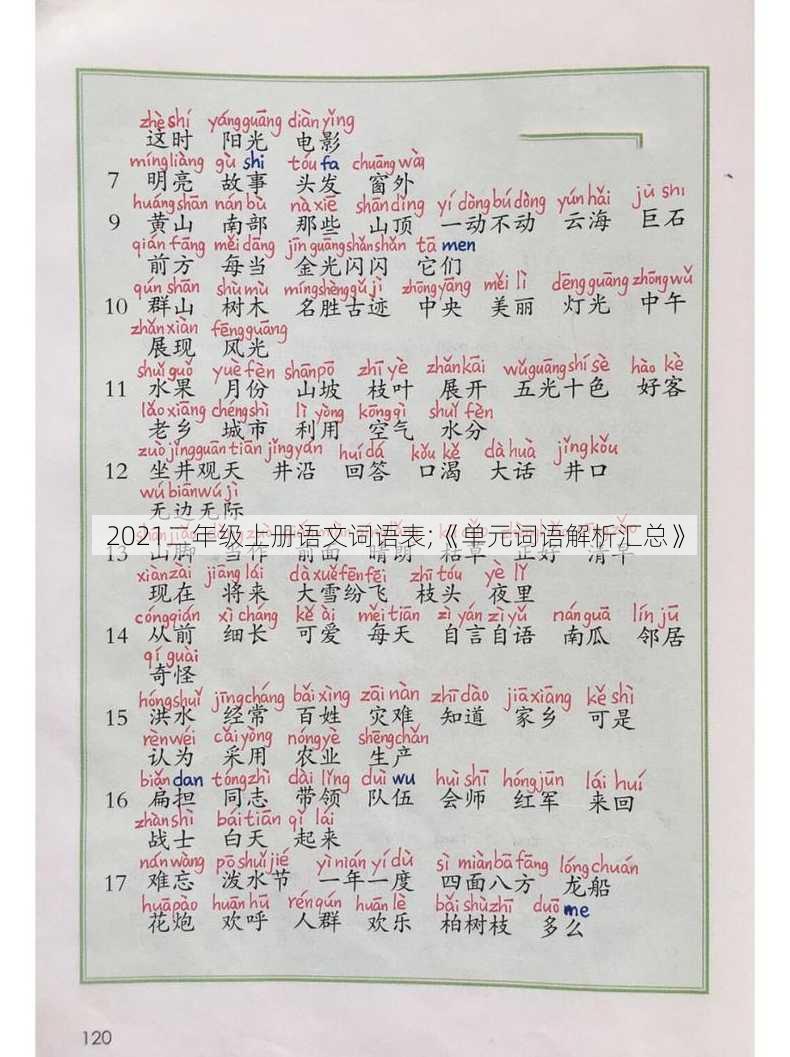 zhè shí yángguāng diànyǐng
这时 阳光 电影
míngliàng gù shi tóu fa chuāngwài
7 明亮 故事 头发 窗外
huángshān nánbù nàxiē shāndǐng yí dòng bú dòng yúnhǎi jù shí
9 黄山 南部 那些 山顶 一动不动 云海 巨石
qiánfāng měidāng jīnguāngshǎnshǎn tā men
前方 每当 金光闪闪 它们
qúnshān shùmù míngshènggǔjì zhōngyāng měi lì dēngguāng zhōngwǔ
10 群山 树木 名胜古迹 中央 美丽 灯光 中午
zhǎnxiàn fēngguāng
展现 风光
shuǐguǒ yuèfèn shānpō zhī yè zhǎnkāi wǔguāngshísè hào kè
11 水果 月份 山坡 枝叶 展开 五光十色 好客
lǎoxiāng chéngshì lì yòng kōngqì shuǐfèn
老乡 城市 利用 空气 水分
zuòjǐngguāntiān jǐngyán huídá kǒu kě dà huà jǐngkǒu
12 坐井观天 井沿 回答 口渴 大话 井口
wúbiānwújì
无边无际
2021二年级上册语文词语表;《单元词语解析汇总》
13 山脚 当作 前面 晴朗 枯草 正好 清早
xiànzài jiānglái dàxuěfēnfēi zhītóu yè lǐ
现在 将来 大雪纷飞 枝头 夜里
cóngqián xì cháng kě ài měitiān zì yán zì yǔ nánguā lín jū
14 从前 细长 可爱 每天 自言自语 南瓜 邻居
qí guài
奇怪
hóngshuǐ jīngcháng bǎixìng zāinàn zhīdào jiāxiāng kěshì
15 洪水 经常 百姓 灾难 知道 家乡 可是
rènwéi cǎiyòng nóngyè shēngchǎn
认为 采用 农业 生产
biǎndan tóngzhì dài lǐng duì wu huì shī hóngjūn lái huí
16 扁担 同志 带领 队伍 会师 红军 来回
zhànshì báitiān qǐ lái
战士 白天 起来
nánwàng pōshuǐjié yì nián yí dù sì miàn bā fāng lóngchuán
17 难忘 泼水节 一年一度 四面八方 龙船
huāpào huānhū rénqún huānlè bǎishùzhī duō me
花炮 欢呼 人群 欢乐 柏树枝 多么
120